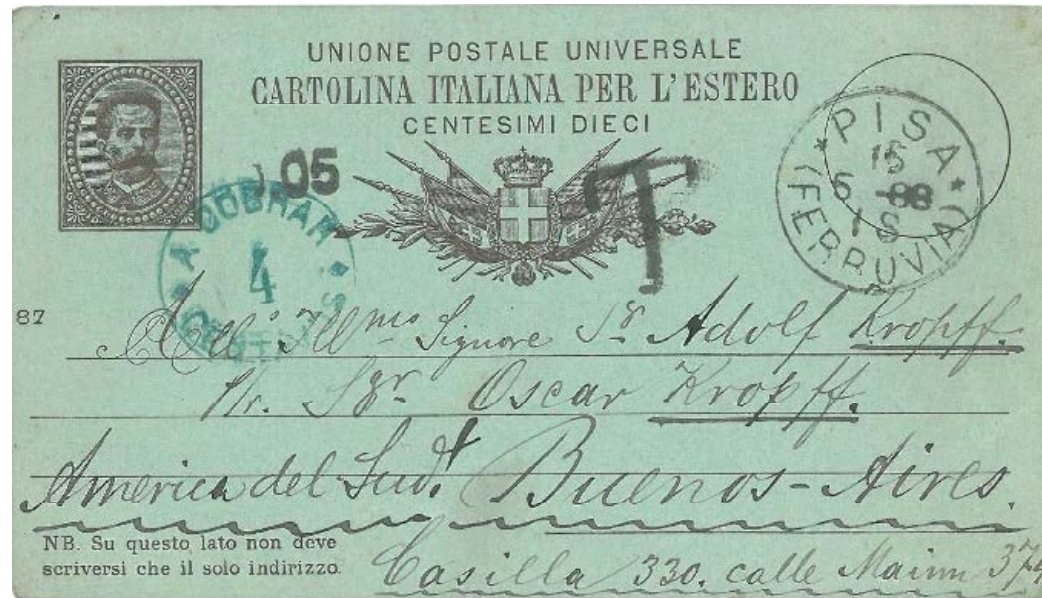 UNIONE POSTALE UNIVERSALE
CARTOLINA ITALIANA PER L'ESTERO
CENTESIMI DIECI
05
T
PISA
15
5 - 88
1 S
(FERROVIA)
A COBRAR
4
87
All' Ill.mo Signore Sr Adolf Kropff.
pr. Sgr. Oscar Kropff.
America del Sud. Buenos-Aires.
NB. Su questo lato non deve
scriversi che il solo indirizzo.
Casilla 330. calle 374